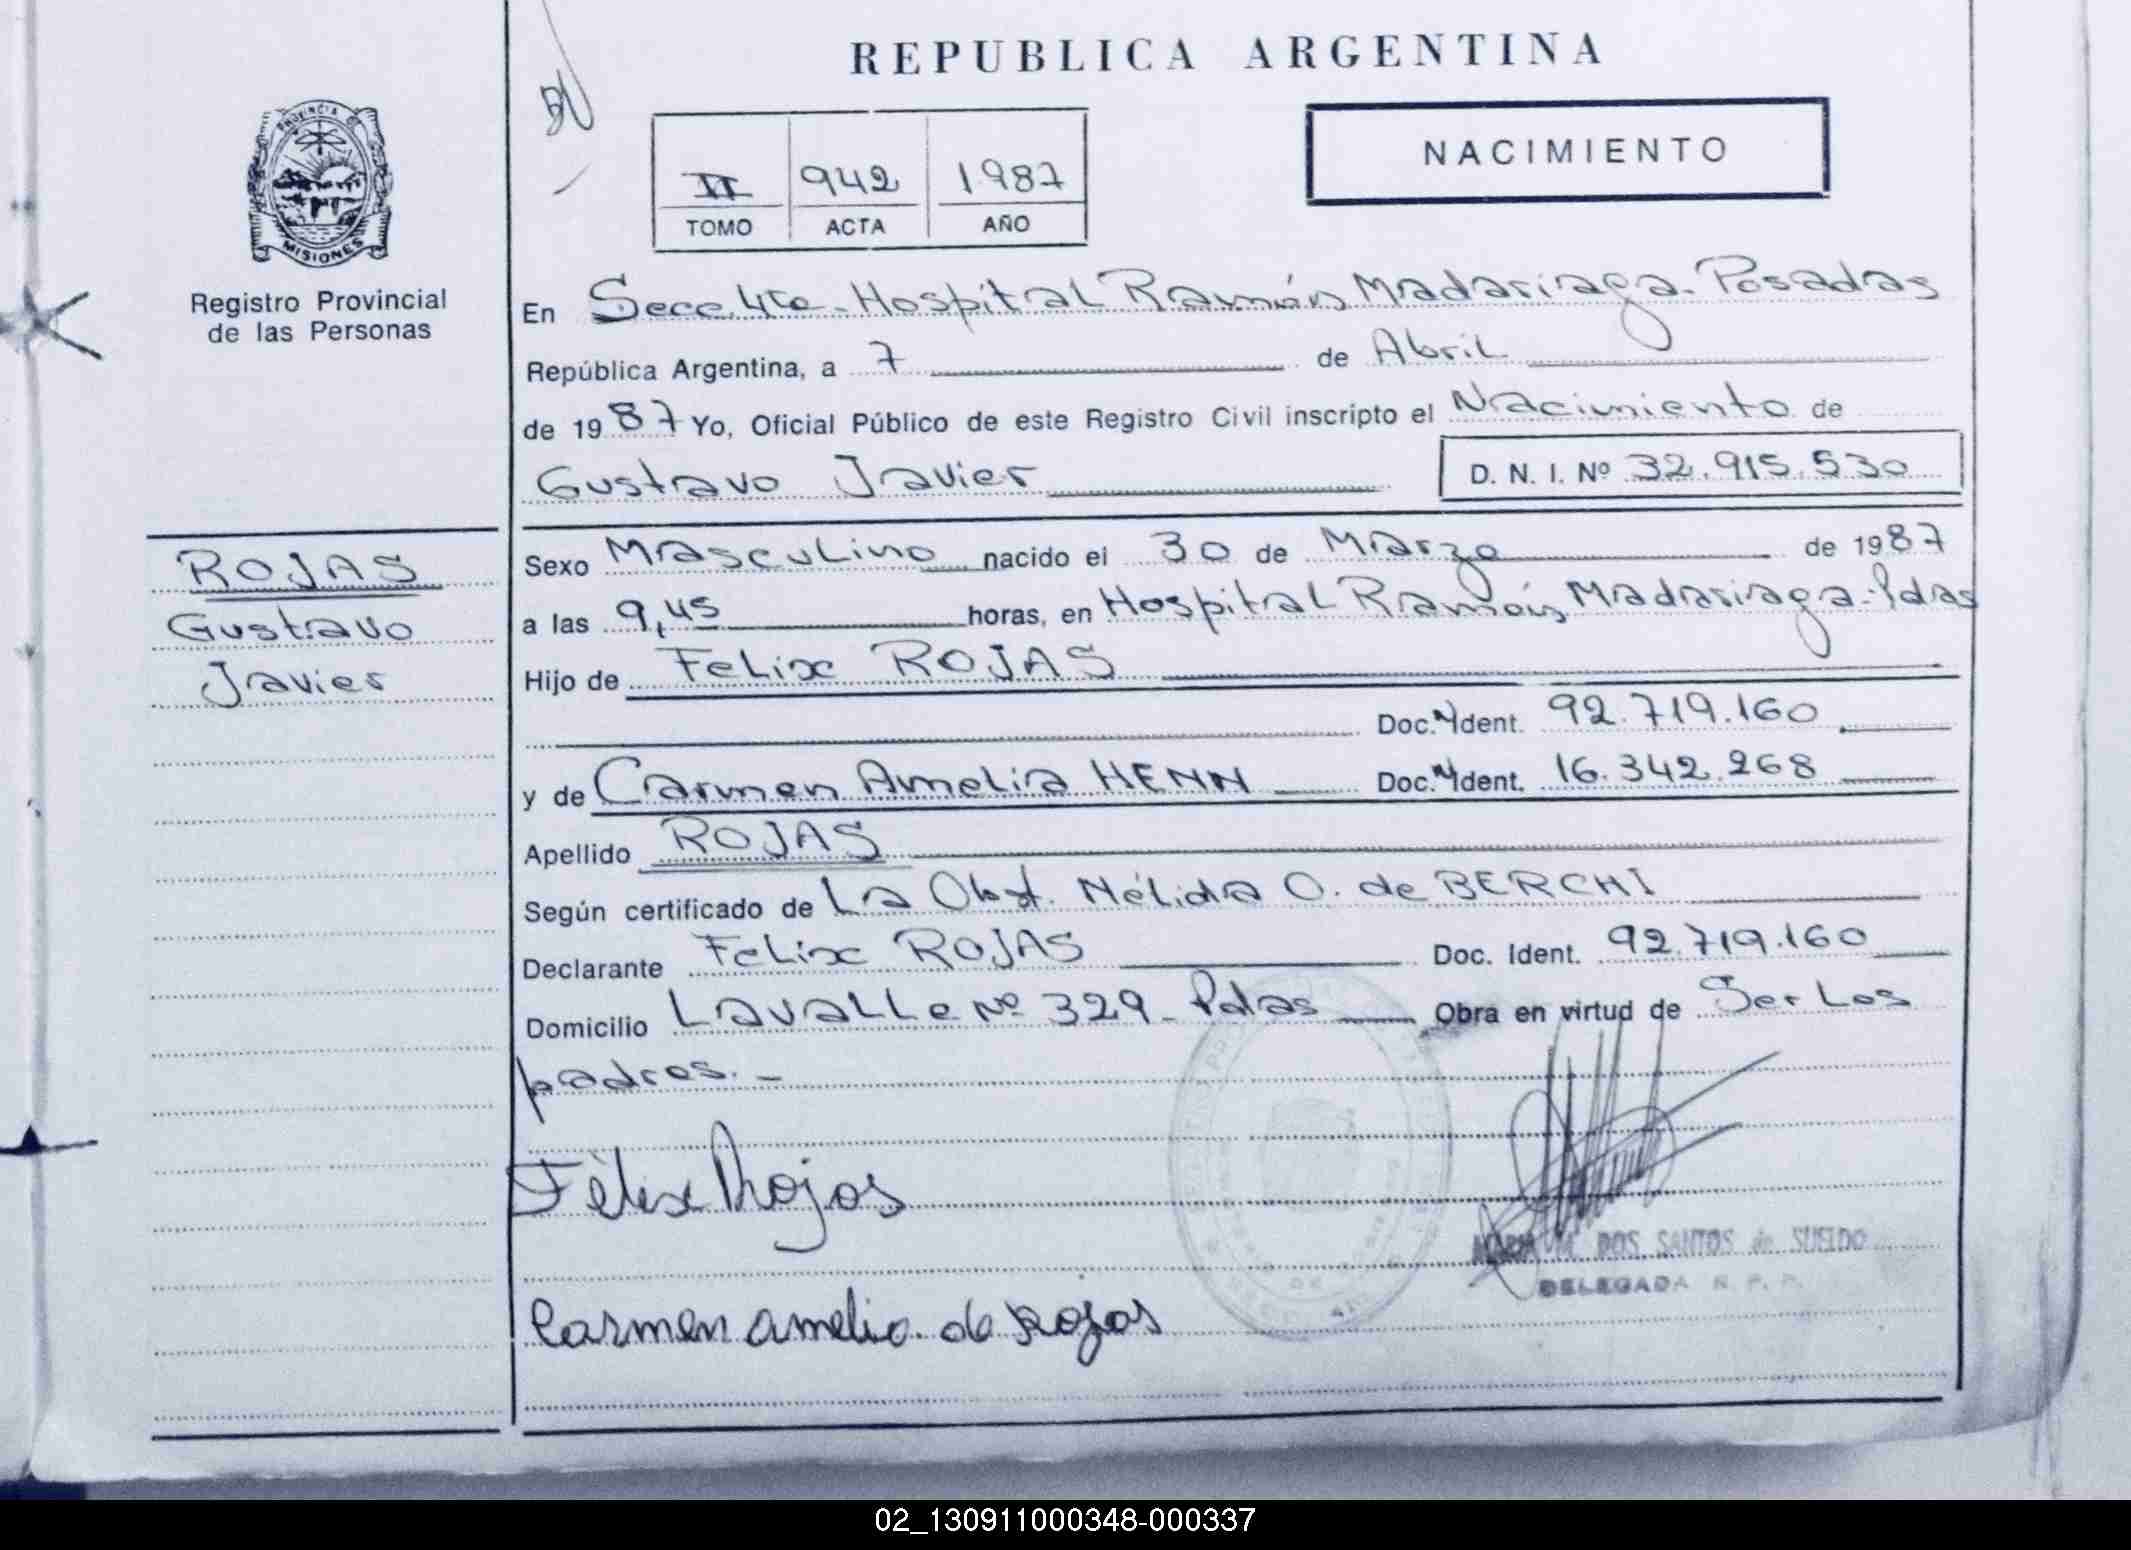 REPUBLICA ARGENTINA
PROVINCIA DE
MISIONES
Registro Provincial
de las Personas
II 942 1987
TOMO ACTA AÑO
NACIMIENTO
En Secc. 4ta - Hospital Ramón Madariaga - Posadas
República Argentina, a 7 de Abril
de 1987 Yo, Oficial Público de este Registro Civil inscripto el Nacimiento de
Gustavo Javier D. N. I. Nº 32.915.530
ROJAS
Gustavo
Javier
Sexo Masculino nacido el 30 de Marzo de 1987
a las 9,45 horas, en Hospital Ramón Madariaga - Pdas
Hijo de Felix ROJAS
Doc. Ident. 92.719.160
y de Carmen Amelia HENN Doc. Ident. 16.342.268
Apellido ROJAS
Según certificado de La Obst. Nélida O. de BERCHI
Declarante Felix ROJAS Doc. Ident. 92.719.160
Domicilio Lavalle Nº 329 - Pdas Obra en virtud de Ser Los
padres. -
Fèlix Rojas
DOS SANTOS de SUELDO
DELEGADA R. P. P.
Carmen Amelia de Rojas
02_130911000348-000337